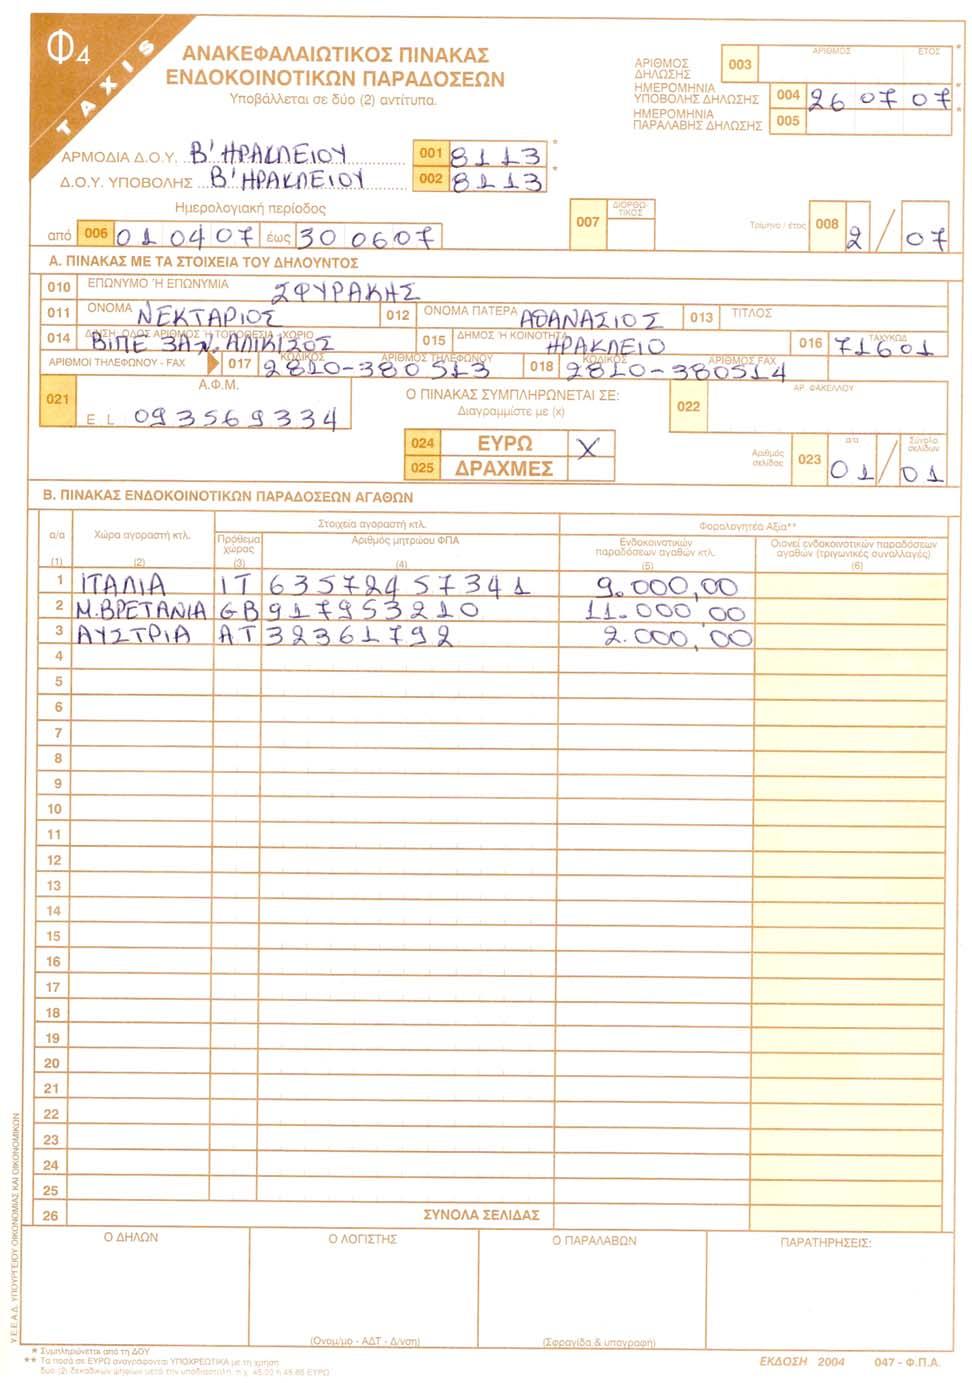 Φ4
TAXIS
ΑΝΑΚΕΦΑΛΑΙΩΤΙΚΟΣ ΠΙΝΑΚΑΣ
ΕΝΔΟΚΟΙΝΟΤΙΚΩΝ ΠΑΡΑΔΟΣΕΩΝ
Υποβάλλεται σε δύο (2) αντίτυπα.
ΑΡΙΘΜΟΣ ΔΗΛΩΣΗΣ 003 ΑΡΙΘΜΟΣ ΕΤΟΣ *
ΗΜΕΡΟΜΗΝΙΑ ΥΠΟΒΟΛΗΣ ΔΗΛΩΣΗΣ 004 26 07 07 *
ΗΜΕΡΟΜΗΝΙΑ ΠΑΡΑΛΑΒΗΣ ΔΗΛΩΣΗΣ 005 *
ΑΡΜΟΔΙΑ Δ.Ο.Υ. Β' ΗΡΑΚΛΕΙΟΥ 001 8113 *
Δ.Ο.Υ. ΥΠΟΒΟΛΗΣ Β' ΗΡΑΚΛΕΙΟΥ 002 8113 *
Ημερολογιακή περίοδος
από 006 010407 έως 300607
007 ΔΙΟΡΘΩΤΙΚΟΣ
Τρίμηνο / έτος 008 2 / 07
Α. ΠΙΝΑΚΑΣ ΜΕ ΤΑ ΣΤΟΙΧΕΙΑ ΤΟΥ ΔΗΛΟΥΝΤΟΣ
010 ΕΠΩΝΥΜΟ Ή ΕΠΩΝΥΜΙΑ ΣΦΥΡΑΚΗΣ
011 ΟΝΟΜΑ ΝΕΚΤΑΡΙΟΣ 012 ΟΝΟΜΑ ΠΑΤΕΡΑ ΑΘΑΝΑΣΙΟΣ 013 ΤΙΤΛΟΣ
014 Δ/ΝΣΗ: ΟΔΟΣ ΑΡΙΘΜΟΣ Ή ΤΟΠΟΘΕΣΙΑ - ΧΩΡΙΟ ΒΙΠΕ 3Α Ν. ΑΛΙΚΙΣΟΣ 015 ΔΗΜΟΣ Ή ΚΟΙΝΟΤΗΤΑ ΗΡΑΚΛΕΙΟ 016 ΤΑΧ.ΚΩΔ. 71601
ΑΡΙΘΜΟΙ ΤΗΛΕΦΩΝΟΥ - FAX 017 ΚΩΔΙΚΟΣ ΑΡΙΘΜΟΣ ΤΗΛΕΦΩΝΟΥ 2810-380513 018 ΚΩΔΙΚΟΣ ΑΡΙΘΜΟΣ FAX 2810-380514
021 Α.Φ.Μ. EL 093569334
Ο ΠΙΝΑΚΑΣ ΣΥΜΠΛΗΡΩΝΕΤΑΙ ΣΕ:
Διαγραμμίστε με (x)
022 ΑΡ. ΦΑΚΕΛΛΟΥ
024 ΕΥΡΩ X
025 ΔΡΑΧΜΕΣ
Αριθμός σελίδας 023 α/α 01 / Σύνολο σελίδων 01
Β. ΠΙΝΑΚΑΣ ΕΝΔΟΚΟΙΝΟΤΙΚΩΝ ΠΑΡΑΔΟΣΕΩΝ ΑΓΑΘΩΝ
Στοιχεία αγοραστή κτλ. Φορολογητέα Αξία**
α/α Χώρα αγοραστή κτλ. Πρόθεμα χώρας Αριθμός μητρώου ΦΠΑ Ενδοκοινοτικών παραδόσεων αγαθών κτλ. Οιονεί ενδοκοινοτικών παραδόσεων αγαθών (τριγωνικές συναλλαγές)
(1) (2) (3) (4) (5) (6)
1 ΙΤΑΛΙΑ IT 63572457341 9.000,00
2 Μ.ΒΡΕΤΑΝΙΑ GB 917953210 11.000,00
3 ΑΥΣΤΡΙΑ AT 32361792 2.000,00
4
5
6
7
8
9
10
11
12
13
14
15
16
17
18
19
20
21
22
23
24
25
26 ΣΥΝΟΛΑ ΣΕΛΙΔΑΣ
Ο ΔΗΛΩΝ Ο ΛΟΓΙΣΤΗΣ Ο ΠΑΡΑΛΑΒΩΝ ΠΑΡΑΤΗΡΗΣΕΙΣ:
(Ονομ/μο - ΑΔΤ - Δ/νση) (Σφραγίδα & υπογραφή)
Υ.Ε.Ε.Α.Δ. ΥΠΟΥΡΓΕΙΟΥ ΟΙΚΟΝΟΜΙΑΣ ΚΑΙ ΟΙΚΟΝΟΜΙΚΩΝ
* Συμπληρώνεται από τη ΔΟΥ
** Τα ποσά σε ΕΥΡΩ αναγράφονται ΥΠΟΧΡΕΩΤΙΚΑ με τη χρήση
δύο (2) δεκαδικών ψηφίων μετά την υποδιαστολή, π.χ. 45,00 ή 45,65 ΕΥΡΩ
ΕΚΔΟΣΗ 2004 047 - Φ.Π.Α.